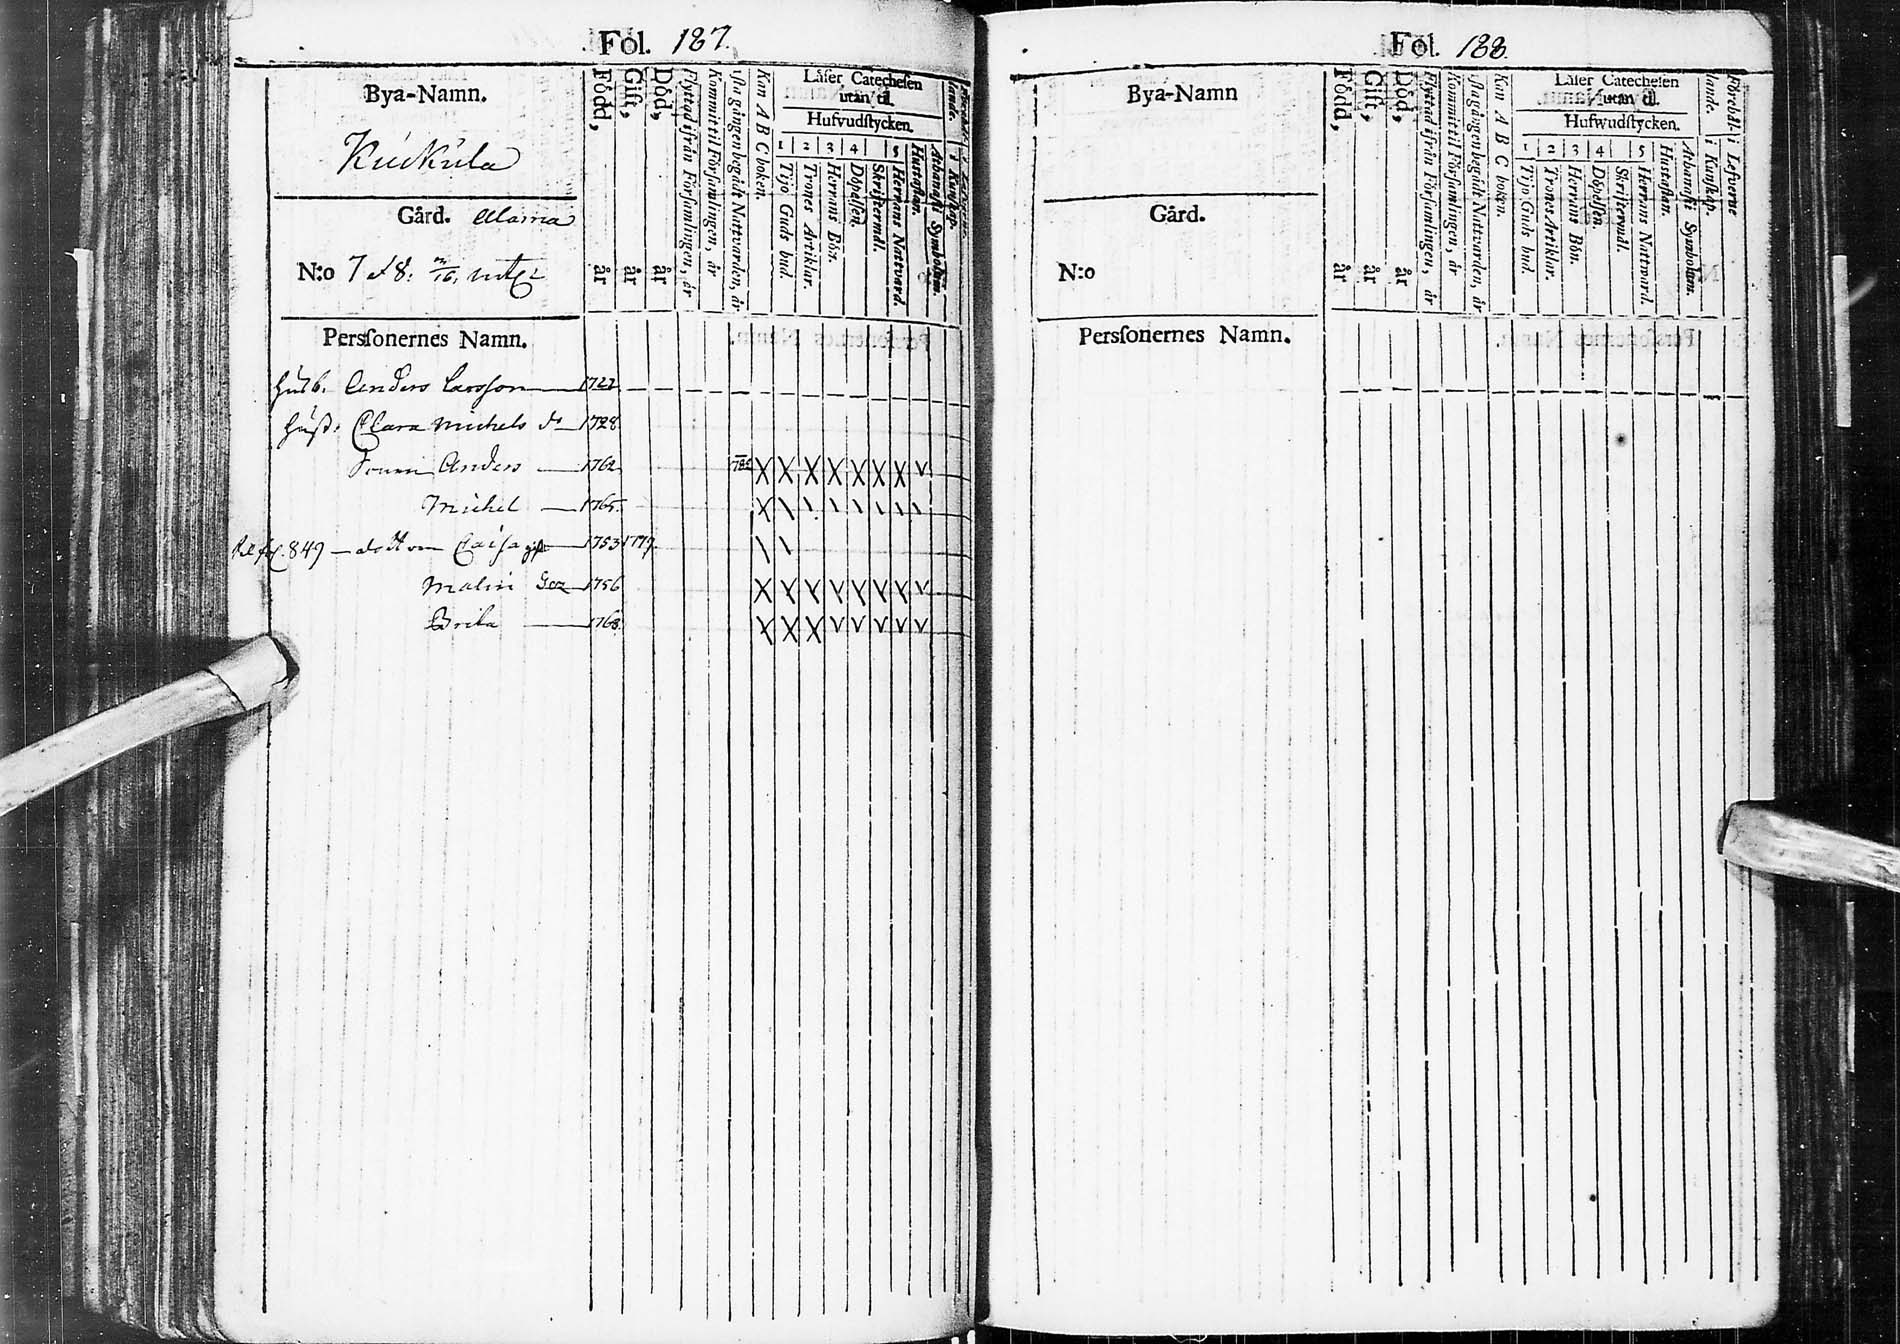 Fol. 187.
Bya-Namn.
Kuukula
Gård. Alama
N:o 7 et 8.
Persſonernes Namn.
Född, år
Gift, år
Död, år
Flyttad ifrån Förſamlingen, år
Kommit til Förſamlingen, år
1ſta gången begådt Nattvarden, år
Kan A B C boken.
Läſer Catecheſen
utan til.
Hufvudſtycken.
1 2 3 4 5
Tijo Guds bud.
Trones Artiklar.
Herrans Bön.
Döpelſen.
Skriftermål.
Herrans Nattvard.
Huſtaflan.
Athanaſii Symbolum.
Husb. Anders Larsson 1722
Hust. Clara Michels dr 1728
Sonen Anders 1762 1782 X X X X X X X v
Michel 1765. X \ \ \ \ \ \ \
fol. 849 dottren Caisa gift 1753 1779. \ \
Malin 1756
Brita 1768.
Fol. 188.
Bya-Namn
Gård.
N:o
Persſonernes Namn.
Född, år
Gift, år
Död, år
Flyttad ifrån Förſamlingen, år
Kommit til Förſamlingen, år
1ſta gången begådt Nattvarden, år
Kan A B C boken.
Läſer Catecheſen
utan til.
Hufwudſtycken.
1 2 3 4 5
Tijo Guds bud.
Trones Artiklar.
Herrans Bön.
Döpelſen.
Skriftermål.
Herrans Nattward.
Huſtaflan.
Athanaſii Symbolum.
Förehållande.
i Kunſkap.
i Lefverne